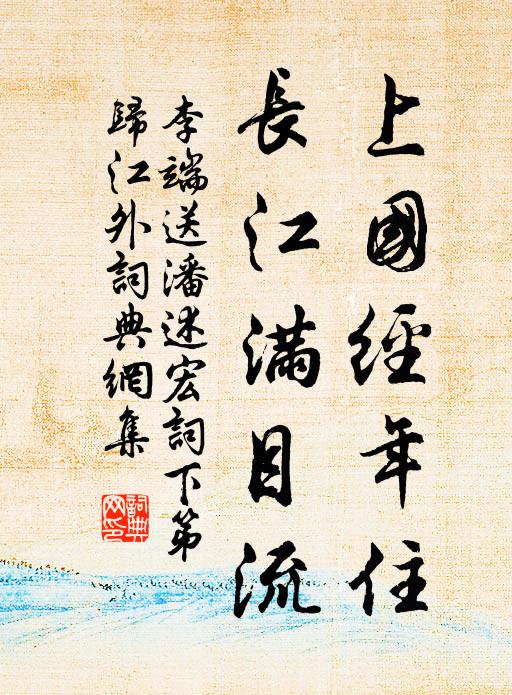 上國經年住
長江滿目流
李端送潘述宏詞下第
歸江外詞典網集
詞典
網印